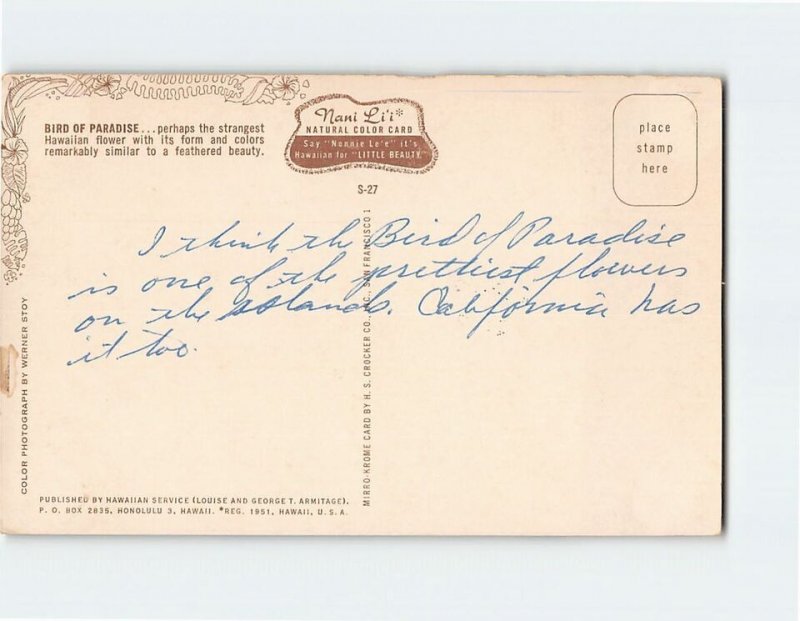 BIRD OF PARADISE... perhaps the strangest
Hawaiian flower with its form and colors
remarkably similar to a feathered beauty.
Nani Li'i*
NATURAL COLOR CARD
Say "Nonnie Le'e" it's
Hawaiian for "LITTLE BEAUTY"
S-27
place
stamp
here
I think the Bird of Paradise
is one of the prettiest flowers
on the Islands. California has
it too.
COLOR PHOTOGRAPH BY WERNER STOY
MIRRO-KROME CARD BY H. S. CROCKER CO., INC., SAN FRANCISCO 1
PUBLISHED BY HAWAIIAN SERVICE (LOUISE AND GEORGE T. ARMITAGE),
P. O. BOX 2835, HONOLULU 3, HAWAII. *REG. 1951, HAWAII, U. S. A.